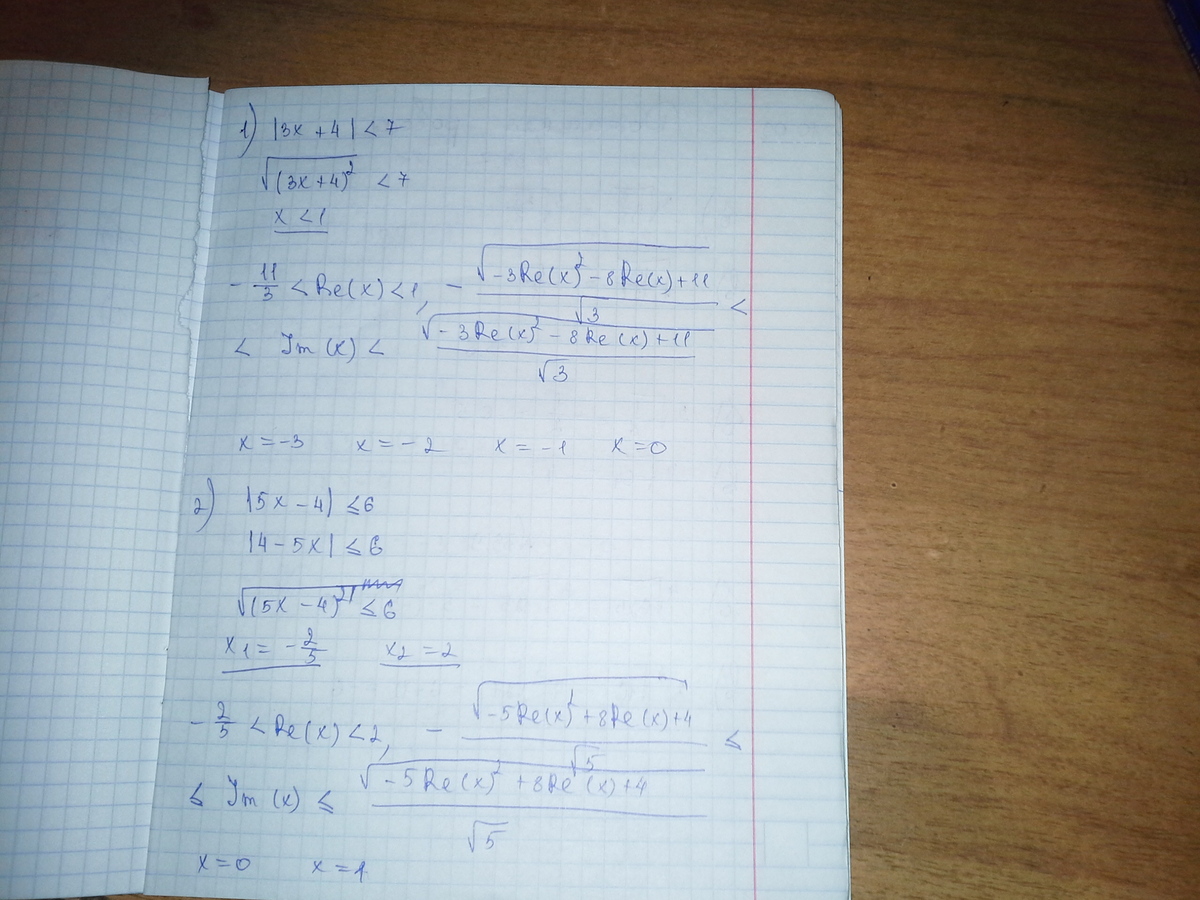 1) |3x+4| < 7
√(3x+4)² < 7
x < 1
- 11/3 < Re(x) < 1, - √-3Re(x)²-8Re(x)+11 / √3 <
< Im(x) < √-3Re(x)²-8Re(x)+11 / √3
x=-3 x=-2 x=-1 x=0
2) |5x-4| ≤ 6
|4-5x| ≤ 6
√(5x-4)² ≤ 6
x1 = - 2/5 x2 = 2
- 2/5 < Re(x) < 2, - √-5Re(x)²+8Re(x)+4 / √5 ≤
≤ Im(x) ≤ √-5Re(x)²+8Re(x)+4 / √5
x=0 x=1